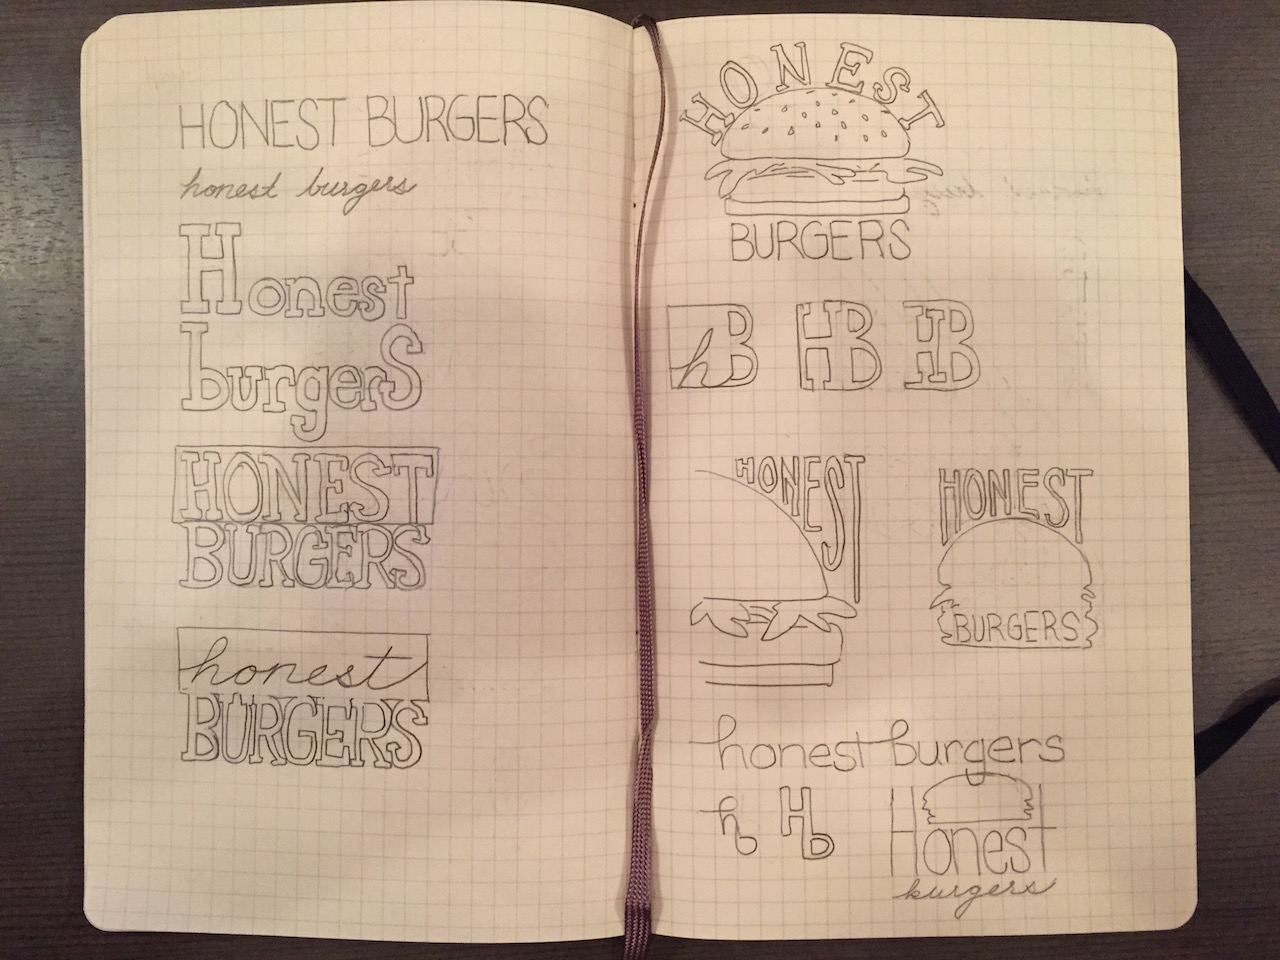 HONEST BURGERS
honest burgers
Honest
burgerS
HONEST
BURGERS
honest
BURGERS
HONEST
BURGERS
hB HB HB
HONEST
HONEST
BURGERS
honest burgers
hb Hb
Honest
burgers